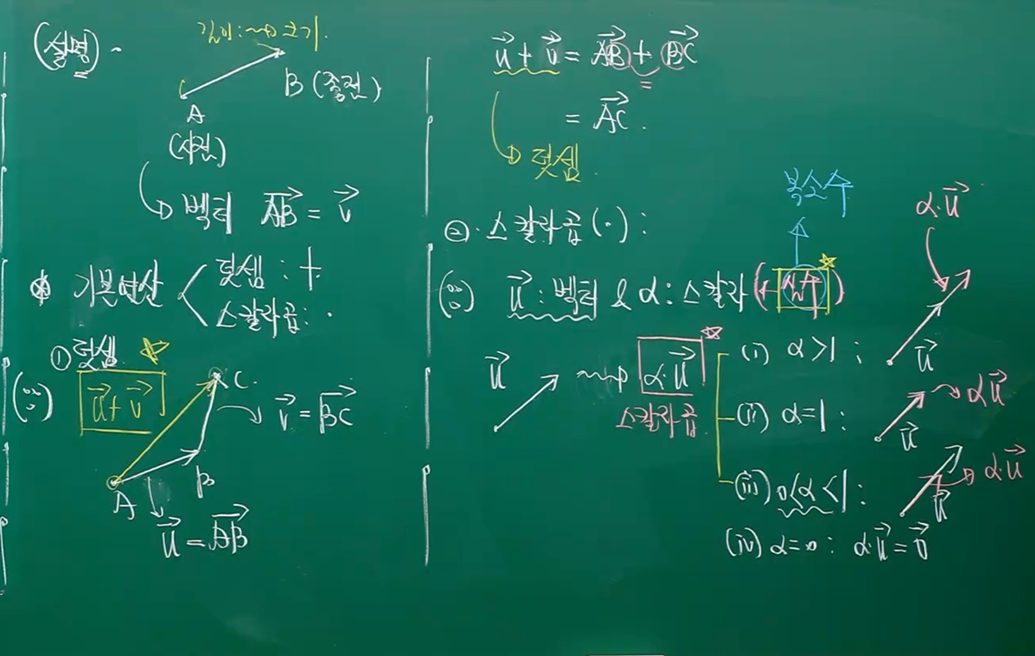 (설명).
길이: ⇝ 크기.
A
(시점)
B (종점)
↳ 벡터 \vec{AB} = \vec{v}
* 기본연산 < 덧셈 : +
스칼라곱 : ·
① 덧셈 ☆
\vec{u}+\vec{v}
A
B
C.
→ \vec{v} = \vec{BC}
\vec{u} = \vec{AB}
\vec{u}+\vec{v} = \vec{AB}+\vec{BC}
= \vec{AC}.
↳ 덧셈.
② · 스칼라곱(·) :
\vec{u} : 벡터 & α : 스칼라 (← 실수)
복소수
\vec{u} ⇝ α·\vec{u}
스칼라곱
(i) α>1 ;
\vec{u}
α·\vec{u}
(ii) α=1 :
\vec{u} → α\vec{u}
(iii) 0<α<1 :
\vec{u} → α·\vec{u}
(iv) α=0 : α·\vec{u} = \vec{0}